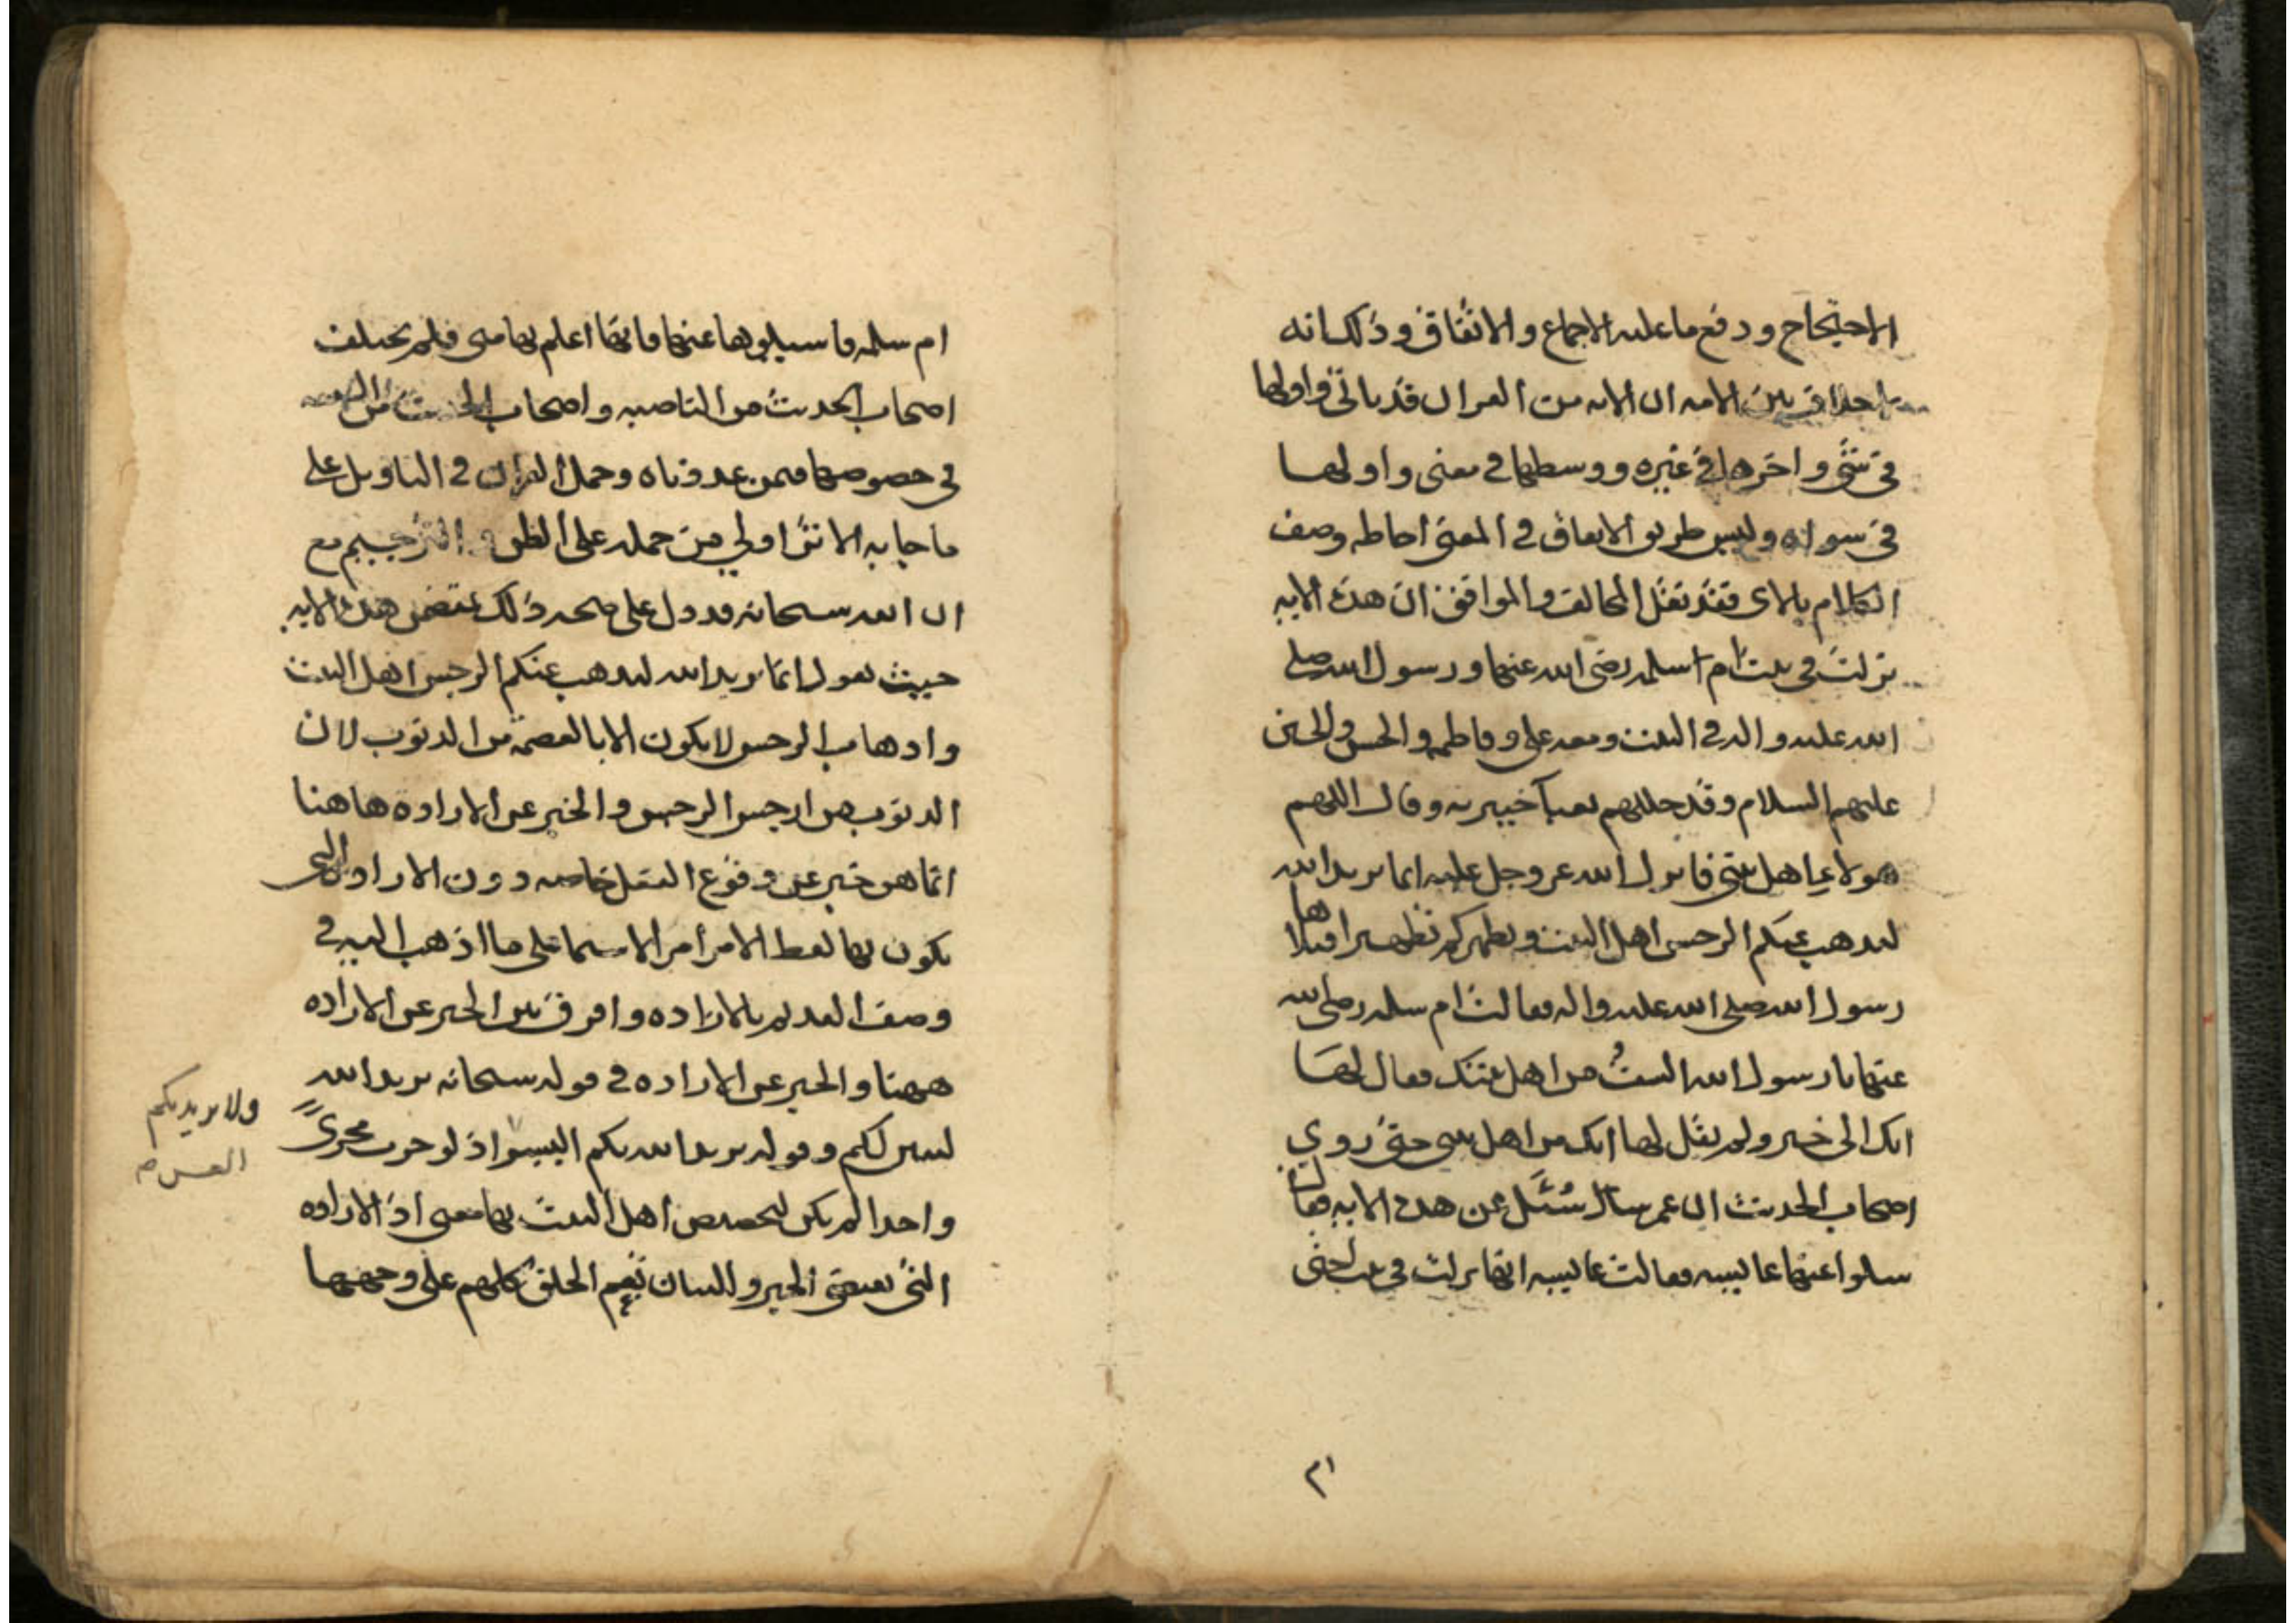 الاحتجاج ودفع ما عليه الاجماع والاتفاق وذلك انه
خلاف بين الامه ان الايه من القران قد ياتي واولها
في شئ واخرها في غيره ووسطها في معنى واولها
في سواه وليس طريق الاتفاق في المعنى احاطه وصف
الكلام بالاى فقد نقل المخالف والموافق ان هذه الايه
نزلت في بيت ام سلمه رضى الله عنها ورسول الله صلى
الله عليه واله في البيت ومعه على وفاطمه والحسن والحسين
عليهم السلام وقد جللهم بعبآ خيبريه وقال اللهم
هولاء اهل بيتى فانزل الله عز وجل عليه انما يريد الله
ليذهب عنكم الرجس اهل البيت ويطهركم تطهيرا فتلاها
رسول الله صلى الله عليه واله فقالت ام سلمه رضى الله
عنها يا رسول الله الستُ من اهل بيتك فقال لها
انك الى خير ولم يقل لها انك من اهل بيتى حتى روي
اصحاب الحديث ان عمر سئل عن هذه الايه فقال
سلوا عنها عايشه فقالت عايشه انها نزلت في بيت اختى
٢١
ام سلمه فاسيلوها عنها فانها اعلم بها منى فلم يختلف
اصحاب الحديث من الناصبه واصحاب الحديث من الشيعه
في خصوصها فيمن عددناه وحمل القران في التاويل على
ما جا به الاثر اولي من حمله على الظن والترجيم مع
ان الله سبحانه قد دل على صحه ذلك بمتضمن هذه الايه
حيث يقول انما يريد الله ليذهب عنكم الرجس اهل البيت
واذهاب الرجس لا يكون الا بالعصمة من الذنوب لان
الذنوب من ارجس الرجس والخبر عن الاراده هاهنا
انما هو خبر عن وقوع الفعل خاصه دون الاراده التى
يكون بها لفظ الامر أمرا لا سيما على ما اذهب اليه في
وصف القديم بالاراده وافرق بين الخبر عن الاراده
ههنا والخبر عن الاراده في قوله سبحانه يريد الله
ليبين لكم وقوله يريد الله بكم اليسر اذ لو جرت مجرىً
ولا يريد بكم
العسر صح
واحدا لم يكن لتخصيص اهل البيت بها معنى اذ الاراده
التى يقتضى الخبر والبيان تعم الخلق كلهم على وجهها